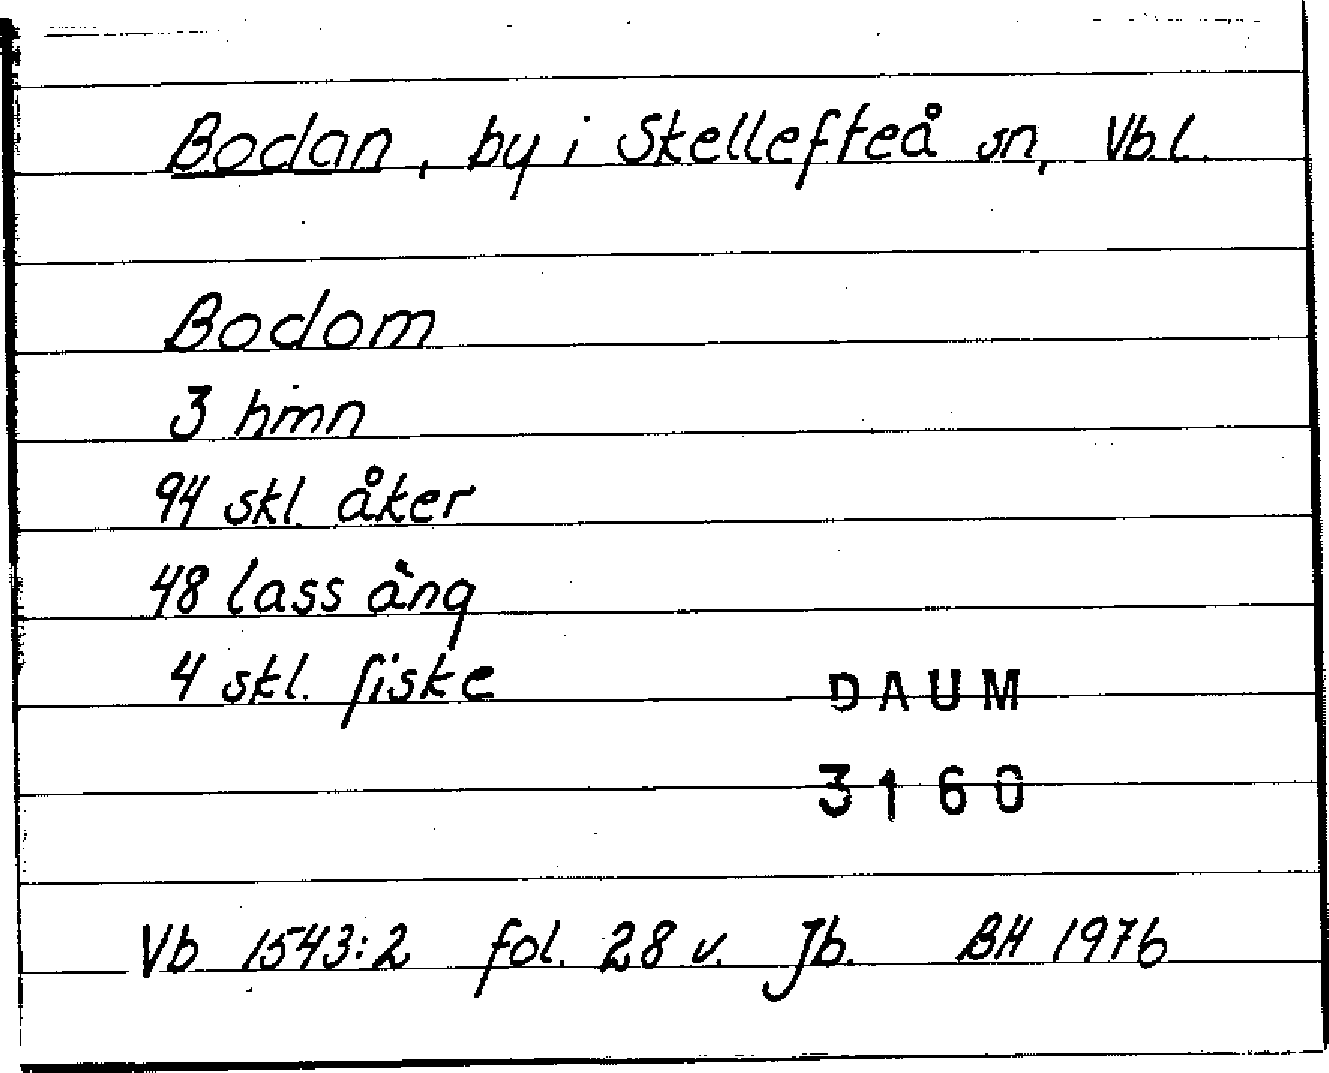 Bodan, by i Skellefteå sn, Vb.l.
Bodom
3 hmn
94 skl. åker
48 lass äng
4 skl. fiske
DAUM
3160
Vb 1543:2 fol. 28 v. Jb. BH 1976